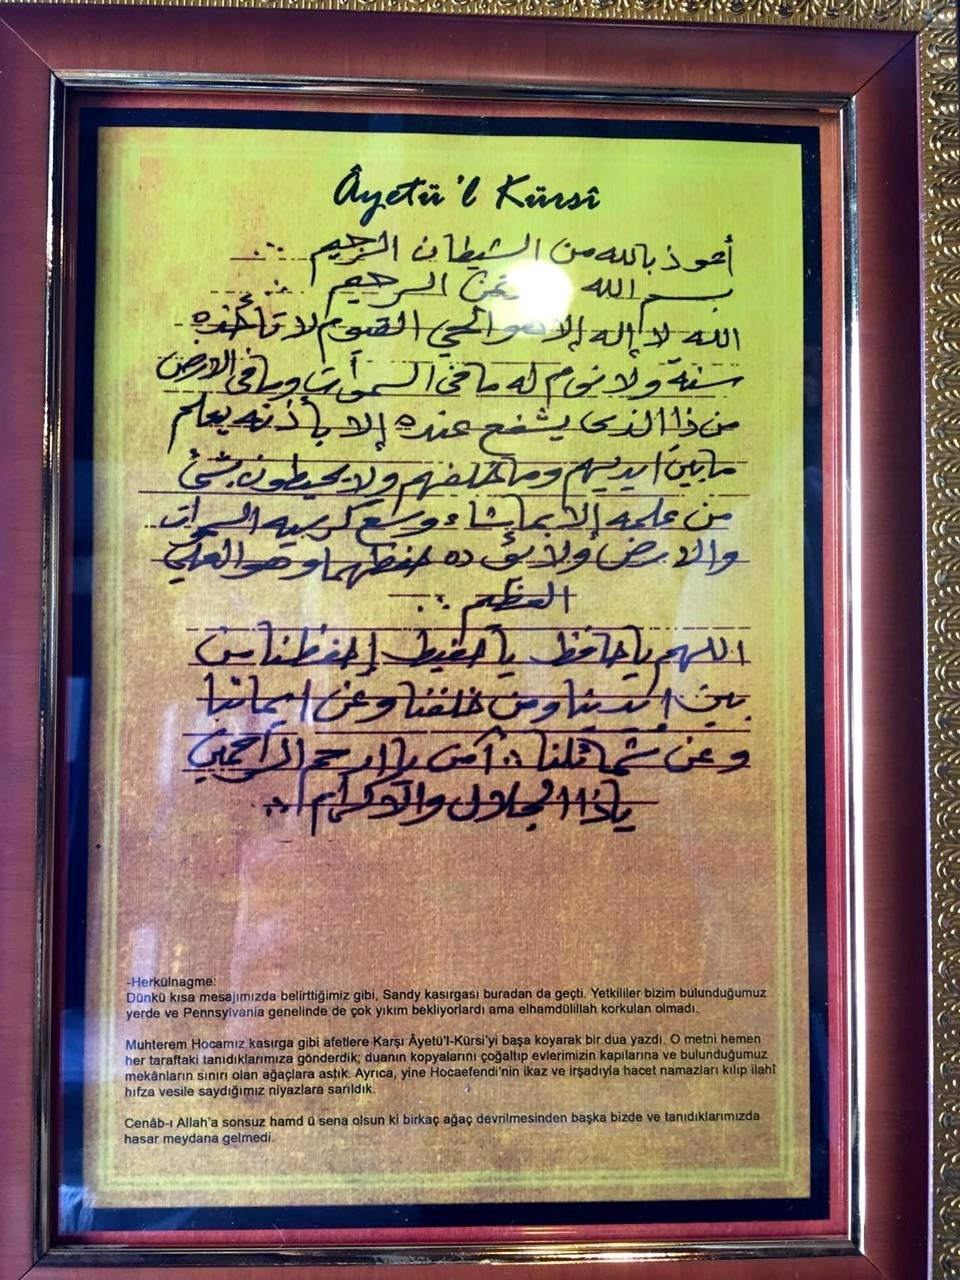 Âyetü'l Kürsî
أعوذ بالله من الشيطان الرجيم
بسم الله الرحيم
الله لا إله إلا هو الحي القيوم لا تأخذه
سنة ولا نوم له ما في السموات وما في الارض
من ذا الذى يشفع عنده إلا بأذنه يعلم
ما بين ايديهم وما خلفهم ولا يحيطون بشئ
من علمه إلا بما شاء وسع كرسيه السموات
والارض ولا يؤده حفظهما وهو العلي
العظيم
اللهم يا حافظ يا حفيظ إحفظنا من
بين ايدينا ومن خلفنا وعن ايماننا
وعن شمائلنا آمين يا ارحم الراحمين
ياذا الجلال والاكرام
-Herkülnagme:
Dünkü kısa mesajımızda belirttiğimiz gibi, Sandy kasırgası buradan da geçti. Yetkililer bizim bulunduğumuz
yerde ve Pennsylvania genelinde de çok yıkım bekliyorlardı ama elhamdülillah korkulan olmadı.
Muhterem Hocamız kasırga gibi afetlere Karşı Âyetü'l-Kürsi'yi başa koyarak bir dua yazdı. O metni hemen
her taraftaki tanıdıklarımıza gönderdik; duanın kopyalarını çoğaltıp evlerimizin kapılarına ve bulunduğumuz
mekânların sınırı olan ağaçlara astık. Ayrıca, yine Hocaefendi'nin ikaz ve irşadıyla hacet namazları kılıp ilahî
hıfza vesile saydığımız niyazlara sarıldık.
Cenâb-ı Allah'a sonsuz hamd ü sena olsun ki birkaç ağaç devrilmesinden başka bizde ve tanıdıklarımızda
hasar meydana gelmedi.